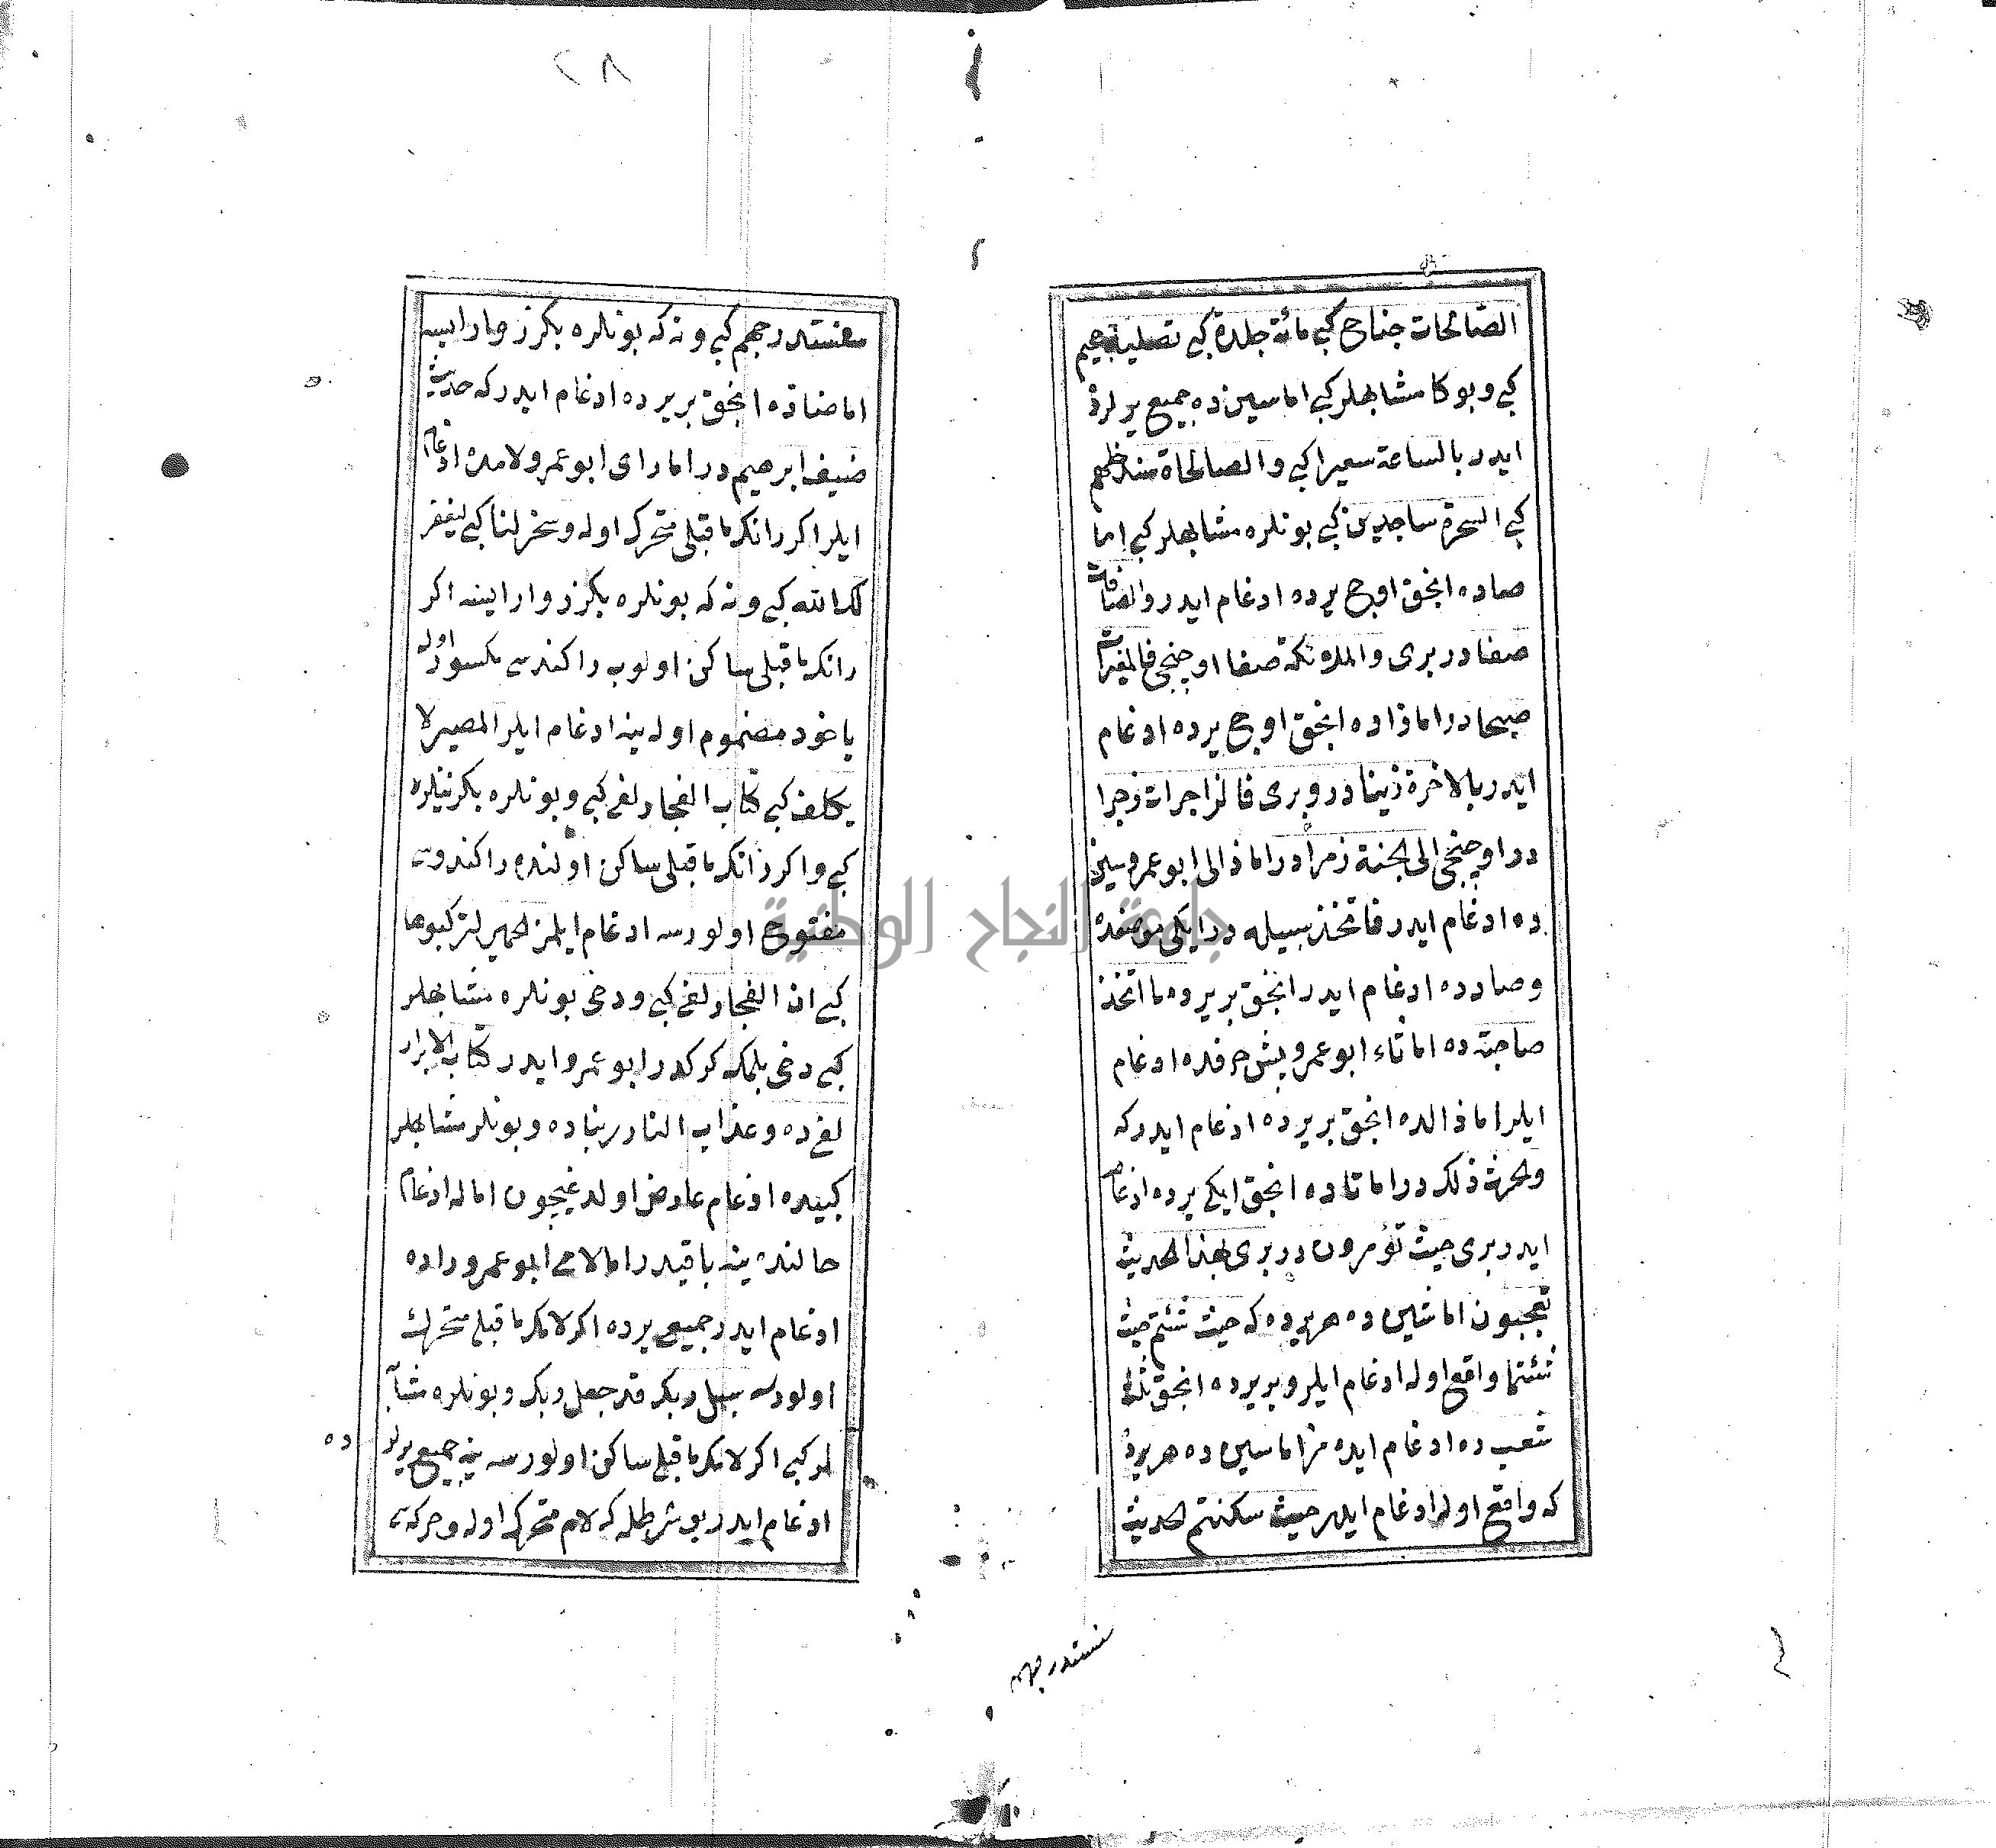 ٢٨
الصالحات جناح كبى مائة جلدة كبى تصلية جحيم
كبى و بوكا مشابهلر كبى اما سين ده جميع يرلرده
ايدر بالساعة سعيرا كبى والصالحاة سندخلهم
كبى السحرة ساجدين كبى بونلره مشابهلر كبى اما
صاده انجق اوچ يرده ادغام ايدر والصافات
صفا در برى والملائكة صفا اوچنجى فالمغيرات
صبحا در اما زاده انجق اوچ يرده ادغام
ايدر بالاخرة زينا در و برى فالزاجرات زجرا
در اوچنجى الى الجنة زمرا در اما ذالى ابو عمرو سين
ده ادغام ايدر فاتخذ سبيله در ايكى موضعده
و صادده ادغام ايدر انجق بر يرده ما اتخذ
صاحبة ده اما ثاء ابو عمرو بش حرفده ادغام
ايلر اما ذالده انجق بر يرده ادغام ايدر كه
والحرث ذلك در اما تاده انجق ايكى يرده ادغام
ايدر برى حيث تؤمرون در برى بهذا الحديث
تعجبون اما شين ده هر يرده كه حيث شئتم حيث
شئتما واقع اوله ادغام ايلر و بر يرده انجق ثلث
شعب ده ادغام ايده مز اما سين ده هر يرده
كه واقع اوله ادغام ايدر حيث سكنتم الحديث
سنستدرجهم
سنستدرجهم كبى و نه كه بونلره بكزر وار ايسه
اما ضاده انجق بر يرده ادغام ايدر كه حديث
ضيف ابرهيم در اما راى ابو عمرو لامده ادغام
ايلر اكر رانك ما قبلى متحرك اوله و سخر لنا كبى ليغفر
لك الله كبى و نه كه بونلره بكزر وار ايسه اكر
رانك ما قبلى ساكن اولوب را كندسى مكسور اوله
ياخود مضموم اوله ينه ادغام ايلر المصير لا
يكلف كبى كتاب الفجار لفى كبى و بونلره بكزينلره
كبى و اكر رانك ما قبلى ساكن اولنده را كندوسى
مفتوح اولورسه ادغام ايلمز الحمير لتركبوها
كبى ان الفجار لفى كبى و دخى بونلره مشابهلر
كبى دخى بلمك كركدر ابو عمرو ايدر كتاب الابرار
لفى ده و عذاب النار ربنا ده و بونلر مشابهلر
كبيده ادغام عارض اولدغيچون اماله ادغام
حالنده ينه باقيدر اما لامى ابو عمرو راده
ادغام ايدر جميعى يرده اكر لامك ما قبلى متحرك
اولورسه سبيل ربك قد جعل ربك و بونلره مشابه
لر كبى اكر لامك ما قبلى ساكن اولورسه ينه جميع يرلر
ده
ادغام ايدر بو شرطله كه لام متحرك اوله و حركه سى
جامعة النجاح الوطنية